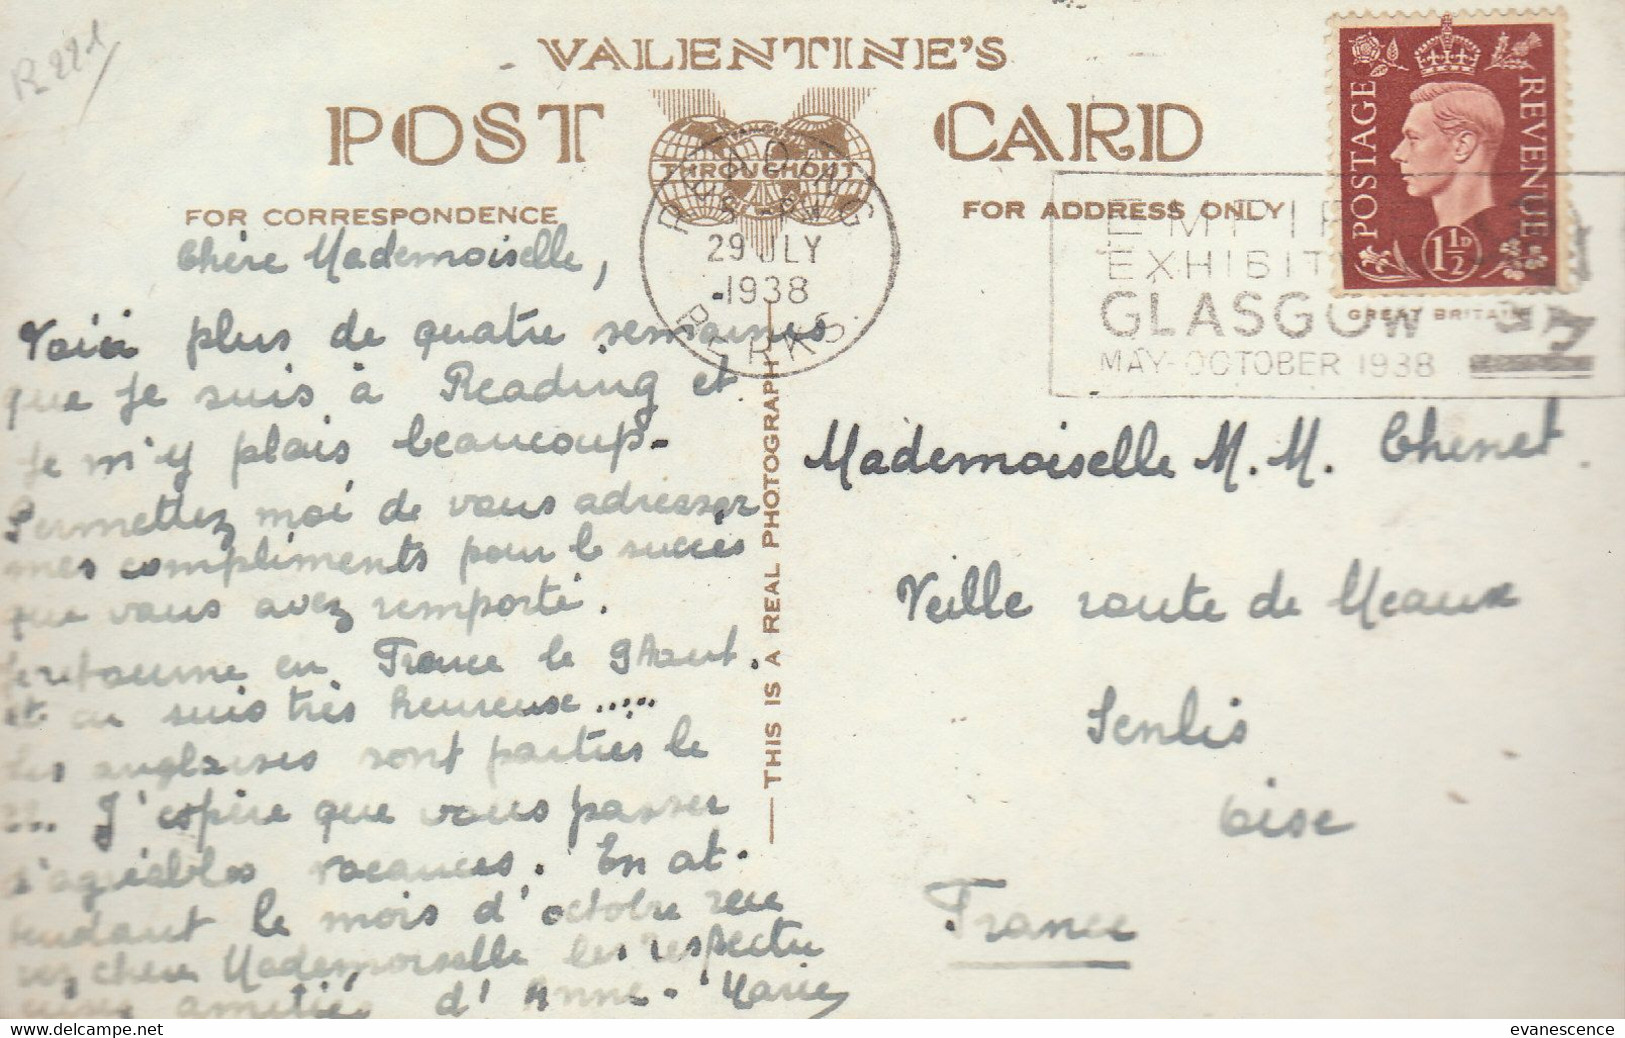 R221
VALENTINE'S
POST CARD
THROUGHOUT
FOR CORRESPONDENCE
FOR ADDRESS ONLY
READING
29 JLY
1938
BERKS.
EXHIBIT
GLASGOW
MAY-OCTOBER 1938
POSTAGE
REVENUE
1½D
GREAT BRITAIN
THIS IS A REAL PHOTOGRAPH
Chère Mademoiselle,
Voici plus de quatre semaines
que je suis à Reading et
je m'y plais beaucoup.
Permettez moi de vous adresser
mes compliments pour le succès
que vous avez remporté.
Je retourne en France le 9 Aout.
et en suis très heureuse.....
Les anglaises sont parties le
J'espère que vous passer
d'agréables vacances. En at-
tendant le mois d'octobre rece
vez chère Mademoiselle les respectu
amitiés d'Anne-Marie
Mademoiselle M. M. Chenet.
Veille route de Meaux
Senlis
Oise
France
www.delcampe.net
evanescence